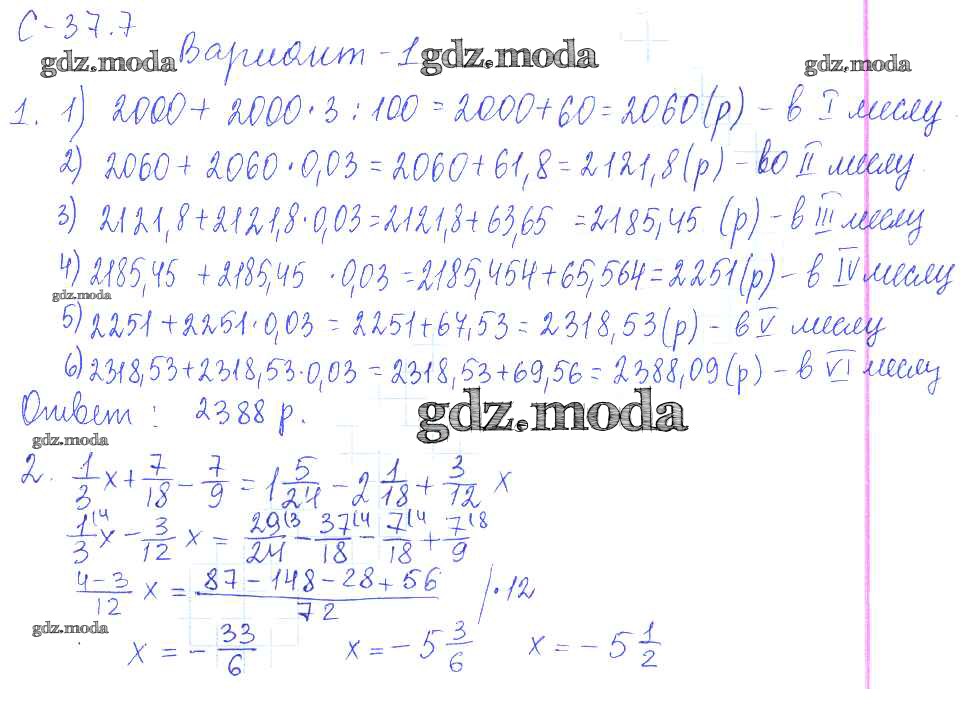 С-37.7
gdz.moda Вариант-1 gdz.moda gdz.moda
1. 1) 2000 + 2000·3 : 100 = 2000+60 = 2060(р) - в I месяц
2) 2060 + 2060·0,03 = 2060+61,8 = 2121,8(р) - во II месяц
3) 2121,8+2121,8·0,03=2121,8+63,65 =2185,45 (р) - в III месяц
4) 2185,45 +2185,45 ·0,03 =2185,454+65,564=2251(р) - в IV месяц
gdz.moda
5) 2251+2251·0,03 = 2251+67,53 = 2318,53(р) - в V месяц
6) 2318,53+2318,53·0,03 = 2318,53+69,56 = 2388,09(р) - в VI месяц
Ответ : 2388 р. gdz.moda
gdz.moda
2. 1/3 x + 7/18 - 7/9 = 1 5/24 - 2 1/18 + 3/12 x
1/3 (4 x - 3/12 x = 29/24 (3 - 37/18 (4 - 7/18 (4 + 7/9 (8
4-3/12 x = 87-148-28+56/72 /·12
gdz.moda
x = - 33/6 x = - 5 3/6 x = - 5 1/2